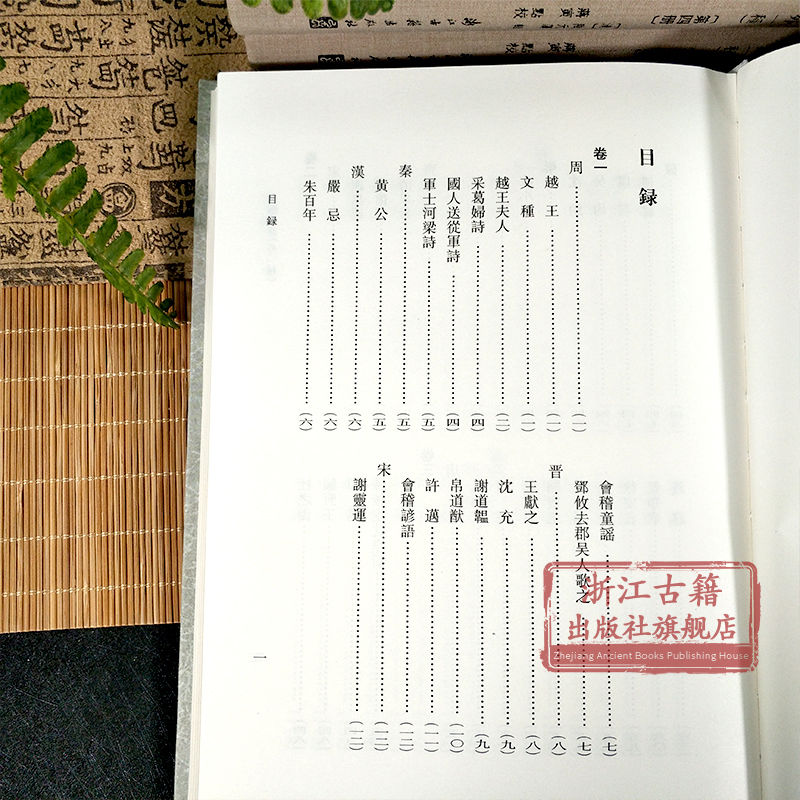 [第四册]
蔣寅點校
浙江古籍出版社
目録
卷一
周……(一)
越王……(一)
文種……(一)
越王夫人……(二)
采葛婦詩……(四)
國人送從軍詩……(四)
軍士河梁詩……(五)
秦……(五)
黄公……(五)
漢……(六)
嚴忌……(六)
朱百年……(六)
會稽童謡……(七)
鄧攸去郡吴人歌之……(七)
晋……(八)
王獻之……(八)
沈充……(九)
謝道韞……(九)
帛道猷……(一〇)
許邁……(一一)
會稽諺語……(一二)
宋……(一二)
謝靈運……(一二)
目録
一
浙江古籍
出版社旗舰店
Zhejiang Ancient Books Publishing House